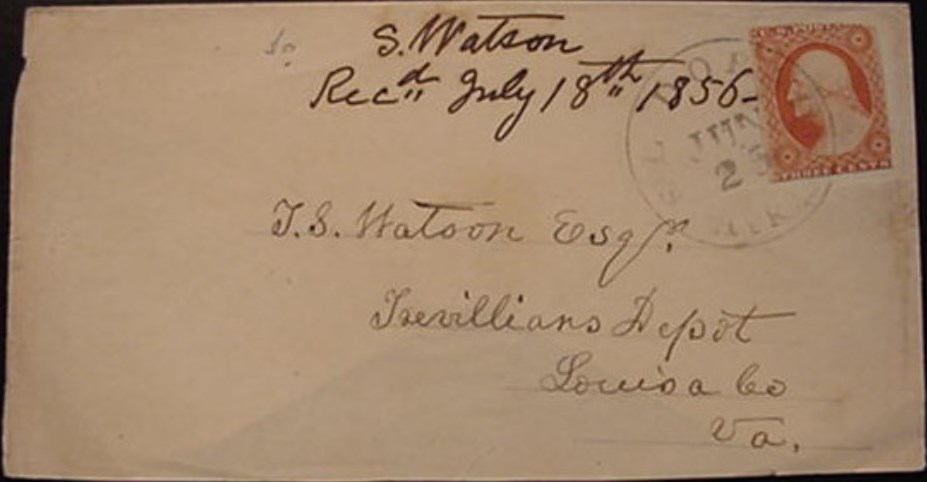 S. Watson
Recd July 18th 1856-
JUN
THREE CENTS
T.S. Watson Esqr.
Trevillians Depot
Louisa Co
Va.